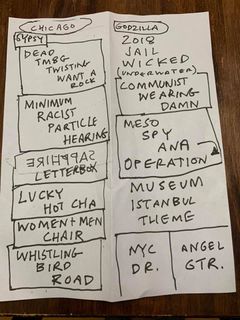 CHICAGO
GYPSY
DEAD
TMBG
TWISTING
WANT A
ROCK
MINIMUM
RACIST
PARTICLE
HEARING
SAPPHIRE
LETTERBOX
LUCKY
HOT CHA
WOMEN + MEN
CHAIR
WHISTLING
BIRD
ROAD
GODZILLA
2018
JAIL
WICKED
(UNDERWATER)
COMMUNIST
WEARING
DAMN
MESO
SPY
ANA
OPERATION
MUSEUM
ISTANBUL
THEME
NYC
DR.
ANGEL
GTR.